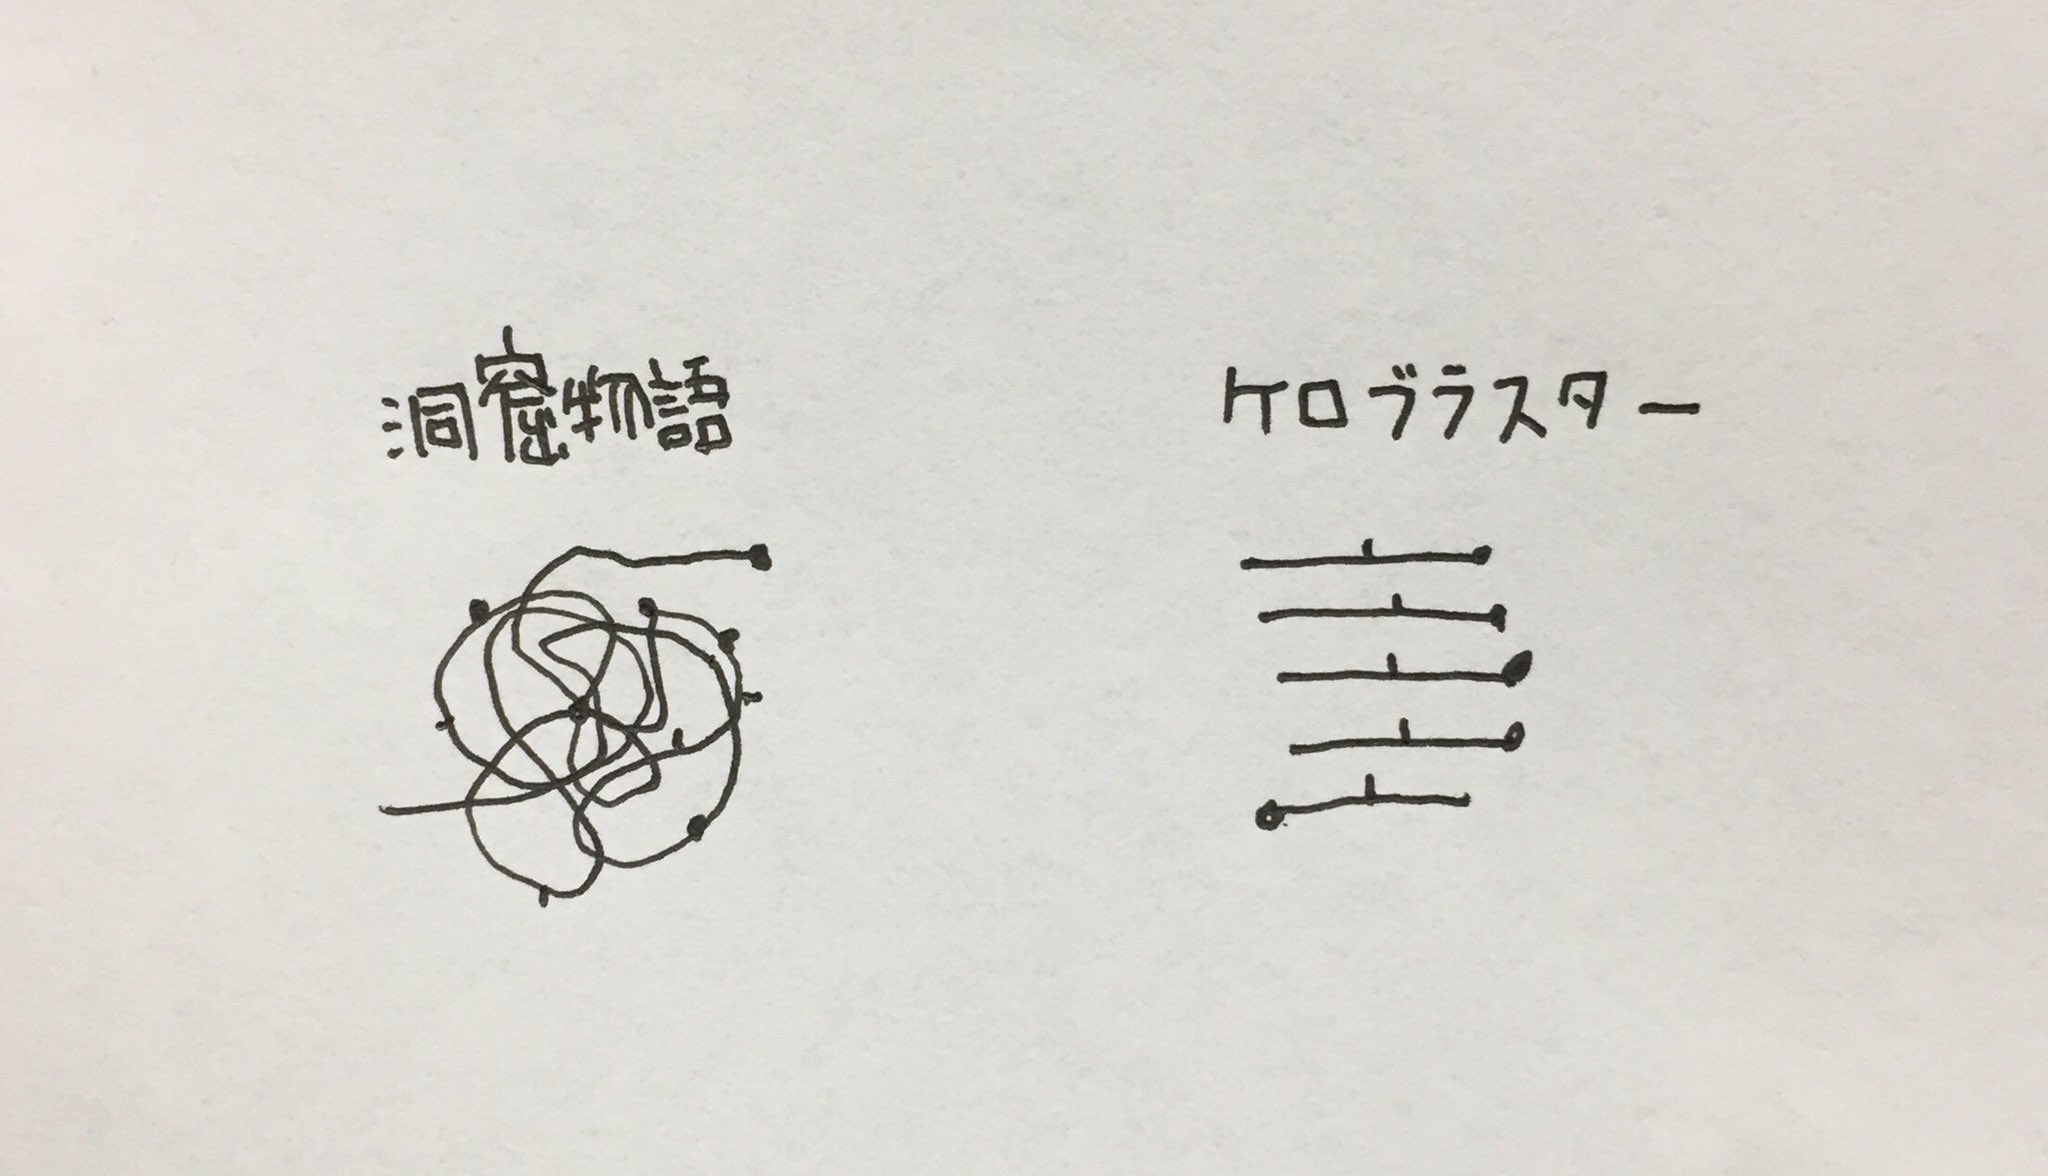 洞窟物語
ケロブラスター